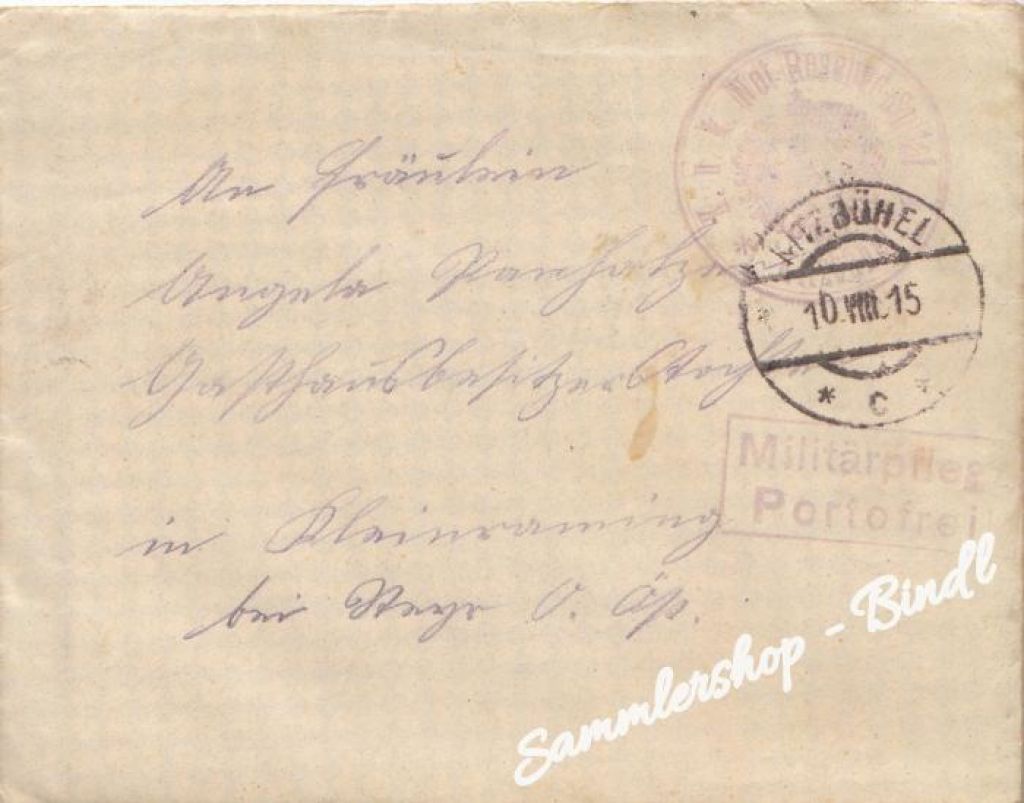 An Fräulein
Angela
Gasthausbesitzerstochter
in Kleinraming
bei Steyr O. Öst.
K. u. K. Not Reserve
KITZBÜHEL
10.VIII.15
* C *
Militärpfleg
Portofrei
Sammlershop - Bindl